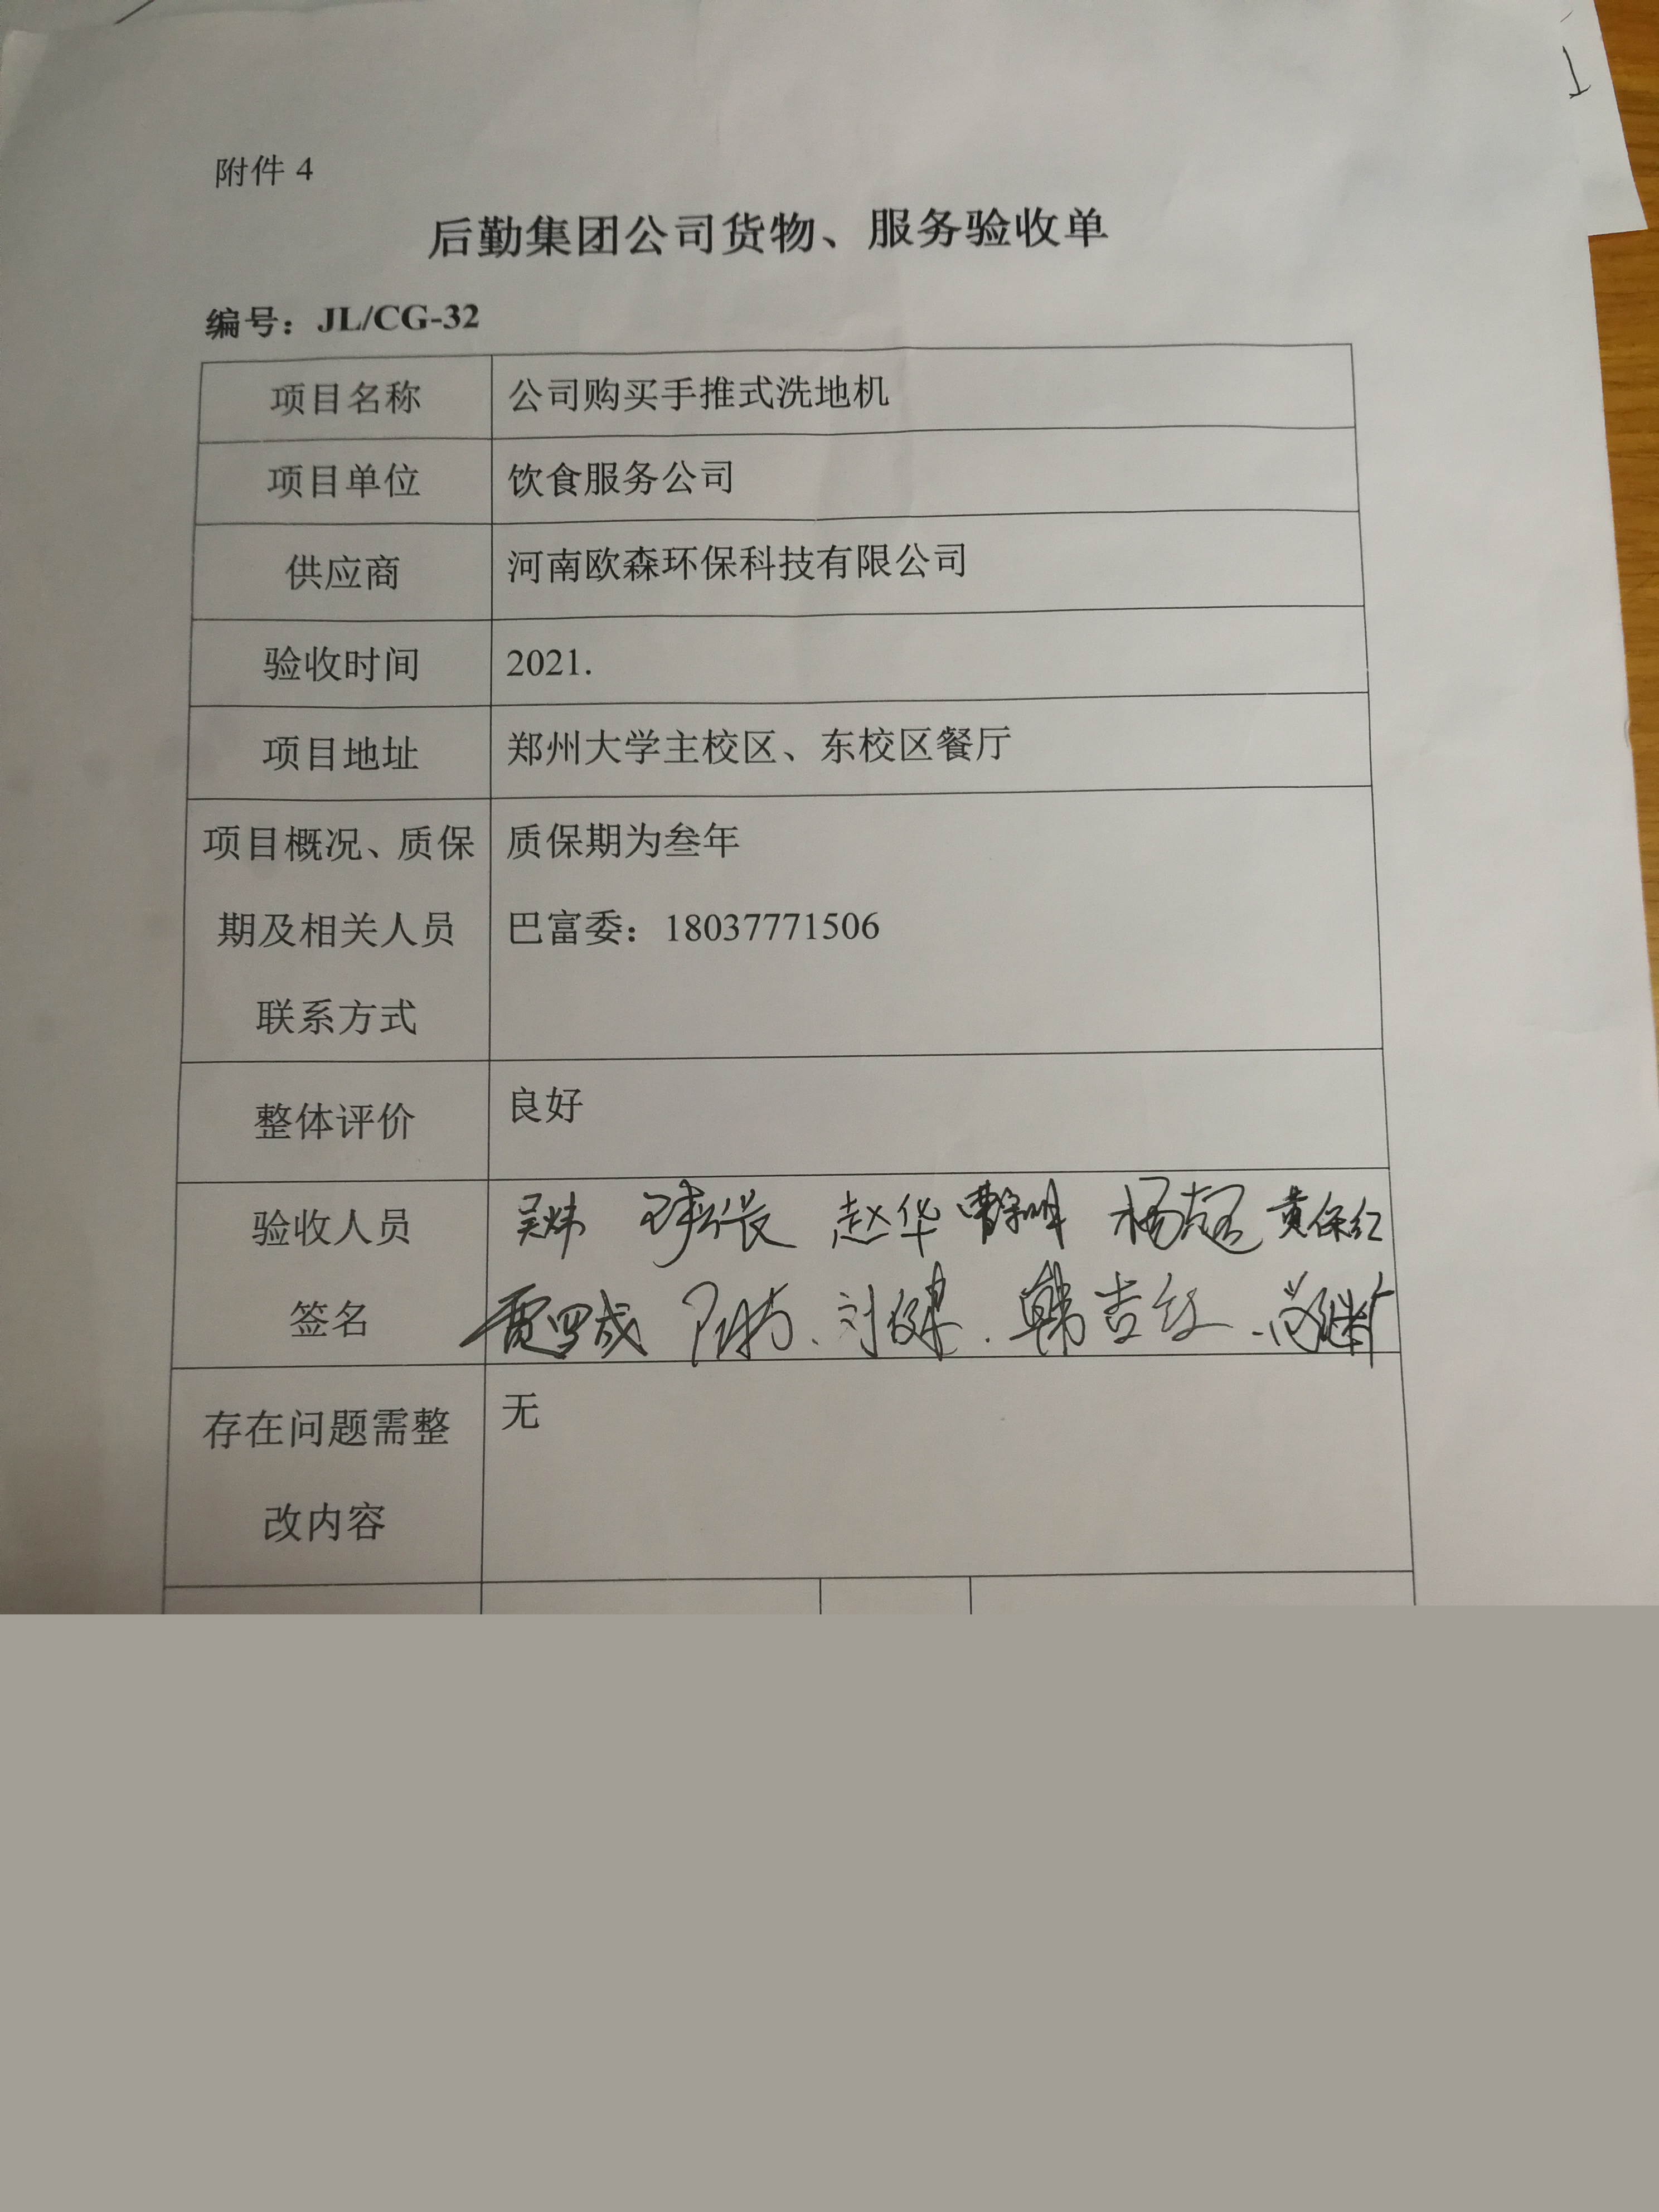 附件 4
后勤集团公司货物、服务验收单
编号：JL/CG-32
项目名称 公司购买手推式洗地机
项目单位 饮食服务公司
供应商 河南欧森环保科技有限公司
验收时间 2021.
项目地址 郑州大学主校区、东校区餐厅
项目概况、质保 质保期为叁年
期及相关人员 巴富委：18037771506
联系方式
整体评价 良好
验收人员 吴炜 赵华 黄保红
签名 韩吉红
存在问题需整 无
改内容